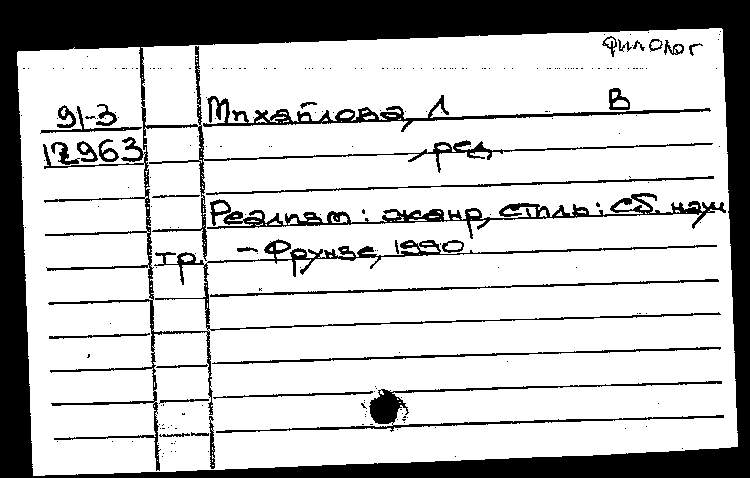 Филолог
91-3 Михайлова, Л В
12963 , ред.
Реализм: жанр, стиль: Сб. науч
тр. - Фрунзе, 1990.